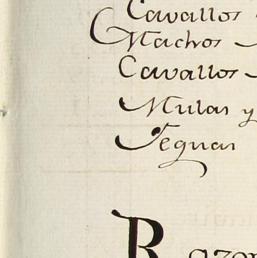 Cavallos
Machos
Cavallos
Mulas y
Yeguas
Razon